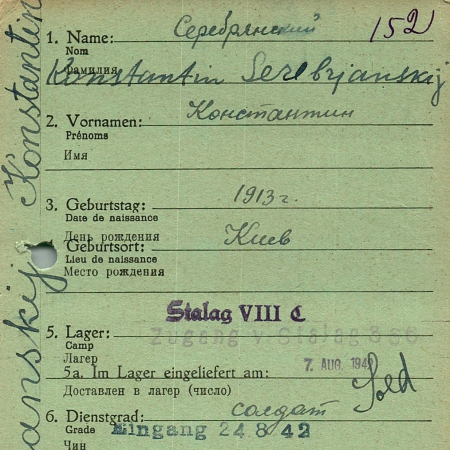 152
1. Name: Серебрянский
Nom
Фамилия
Konstantin Serebrjanskij
2. Vornamen: Константин
Prénoms
Имя
3. Geburtstag: 1913 г.
Date de naissance
День рождения
Geburtsort: Киев
Lieu de naissance
Место рождения
Stalag VIII C
5. Lager: Zugang v. Stalag 336
Camp
Лагер
5a. Im Lager eingeliefert am: 7. AUG. 1942
Доставлен в лагер (число)
Sold
6. Dienstgrad: солдат
Grade
Eingang 24 8 42
Чин
anskij Konstantin